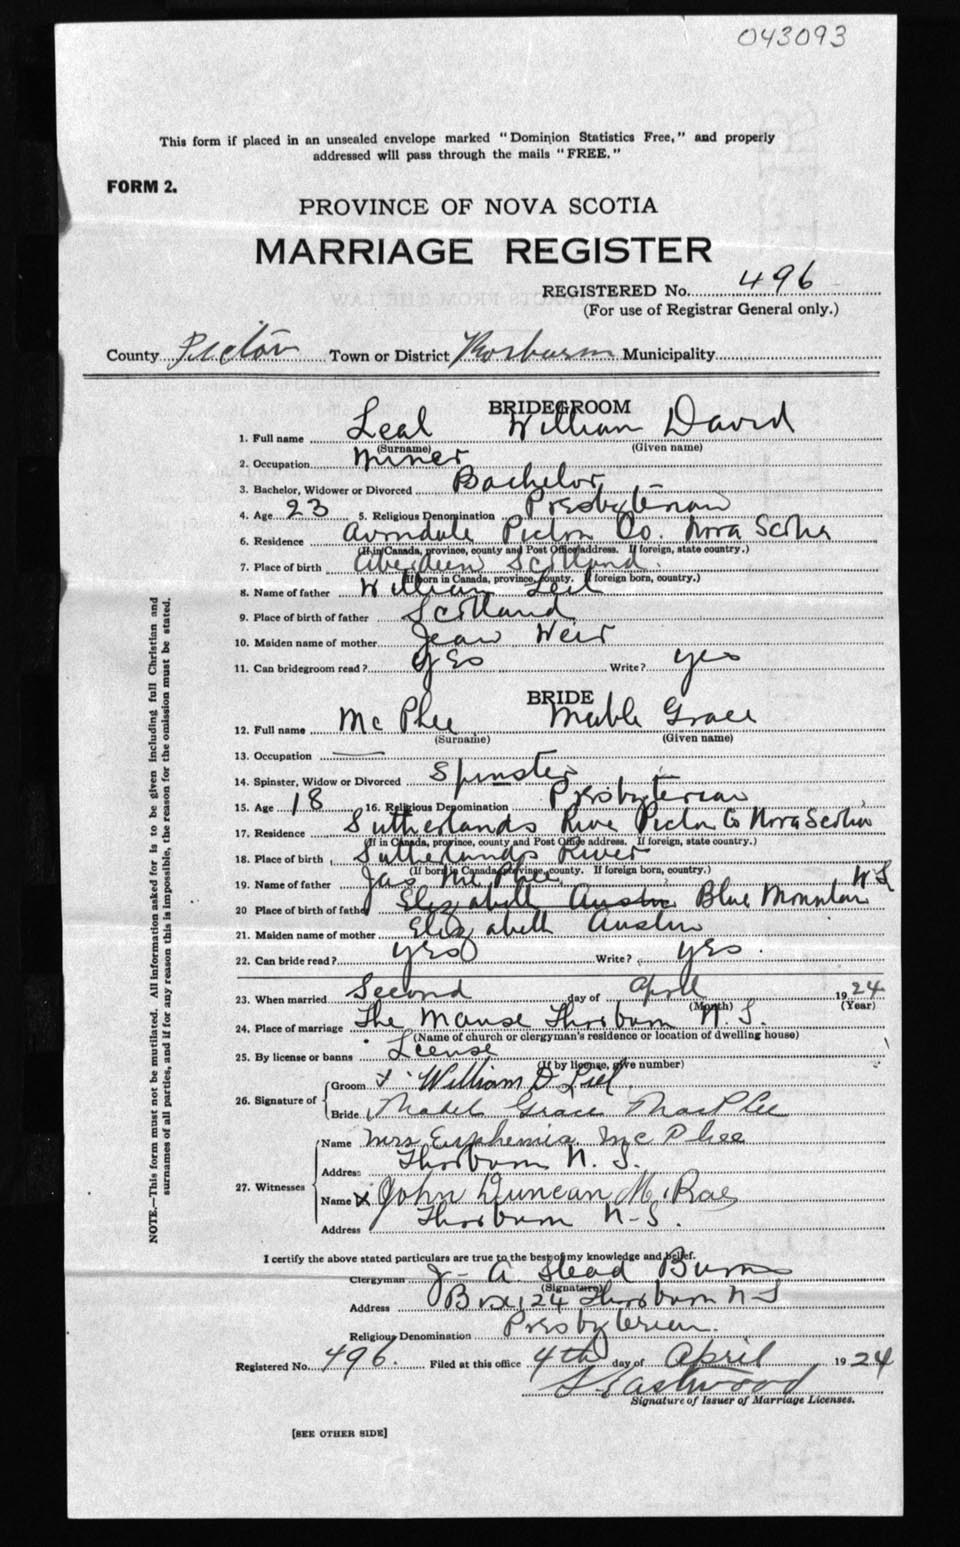 043093
This form if placed in an unsealed envelope marked "Dominion Statistics Free," and properly
addressed will pass through the mails "FREE."
FORM 2.
PROVINCE OF NOVA SCOTIA
MARRIAGE REGISTER
REGISTERED No. 496
(For use of Registrar General only.)
County Pictou Town or District Municipality
BRIDEGROOM
1. Full name Leal William David
(Surname) (Given name)
2. Occupation Miner
3. Bachelor, Widower or Divorced Bachelor
4. Age 23 5. Religious Denomination Presbyterian
6. Residence Avondale Pictou Co. Nova Scotia
(If in Canada, province, county and Post Office address. If foreign, state country.)
7. Place of birth Aberdeen Scotland.
(If born in Canada, province, county. If foreign born, country.)
8. Name of father William Leil
9. Place of birth of father Scotland
10. Maiden name of mother Jean Weir
11. Can bridegroom read? yes Write? yes
BRIDE
12. Full name McPhee Mable Grace
(Surname) (Given name)
13. Occupation —
14. Spinster, Widow or Divorced Spinster
15. Age 18 16. Religious Denomination Presbyterian
17. Residence Sutherlands River Pictou Co Nova Scotia
(If in Canada, province, county and Post Office address. If foreign, state country.)
18. Place of birth Sutherlands River
(If born in Canada, province, county. If foreign born, country.)
19. Name of father Jas McPhee
20 Place of birth of father Elizabeth Austin Blue Mountain N S
21. Maiden name of mother Elizabeth Austin
22. Can bride read? yes Write? yes.
23. When married Second day of April 1924
(Month) (Year)
24. Place of marriage The Manse Thorburn N. S.
(Name of church or clergyman's residence or location of dwelling house)
25. By license or banns License
(If by license, give number)
26. Signature of Groom William D Liel.
Bride Mabel Grace MacPhee
27. Witnesses Name Mrs Euphemia McPhee
Address Thorburn N. S.
Name x John Duncan McRae
Address Thorburn N-S.
I certify the above stated particulars are true to the best of my knowledge and belief.
Clergyman J- A. Stead Burns
(Signature)
Address Box 124 Thorburn N-S
Religious Denomination Presbyterian.
Registered No. 496. Filed at this office 4th day of April 1924
S Eastwood
Signature of Issuer of Marriage Licenses.
[SEE OTHER SIDE]
NOTE.—This form must not be mutilated. All information asked for is to be given including full Christian and
surnames of all parties, and if for any reason this is impossible, the reason for the omission must be stated.